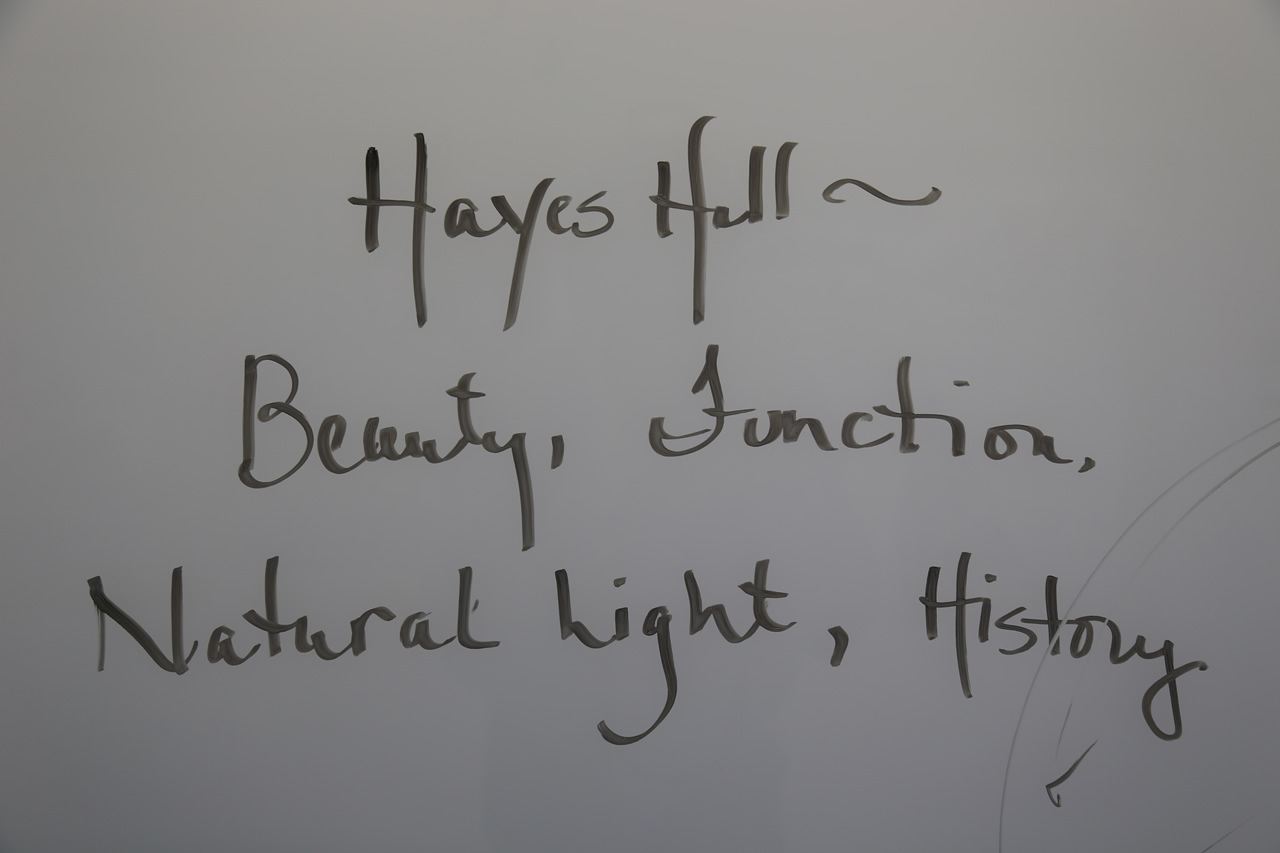 Hayes Hall ~
Beauty, Function,
Natural Light, History.